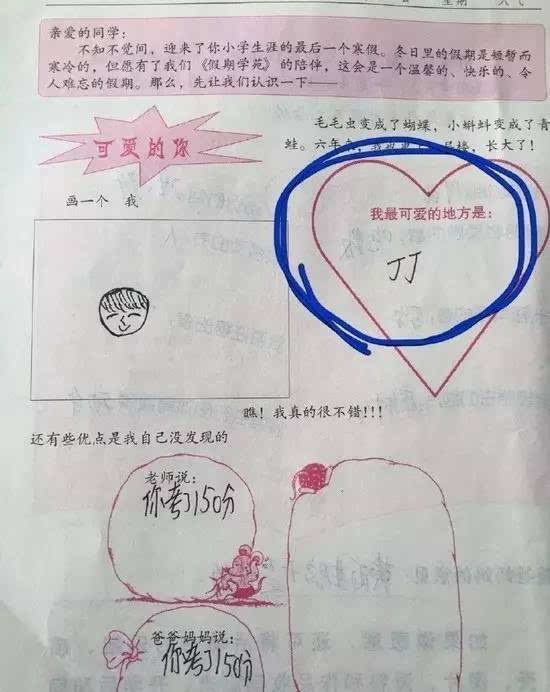 亲爱的同学：
不知不觉间，迎来了你小学生涯的最后一个寒假。冬日里的假期是短暂而
寒冷的，但愿有了我们《假期学苑》的陪伴，这会是一个温馨的、快乐的、令
人难忘的假期。那么，先让我们认识一下——
可爱的你
毛毛虫变成了蝴蝶，小蝌蚪变成了青
蛙。六年来，长大了！
画一个 我
我最可爱的地方是：
JJ
瞧！我真的很不错！！！
还有些优点是我自己没发现的
老师说：
你考了150分
爸爸妈妈说：
你考了150分